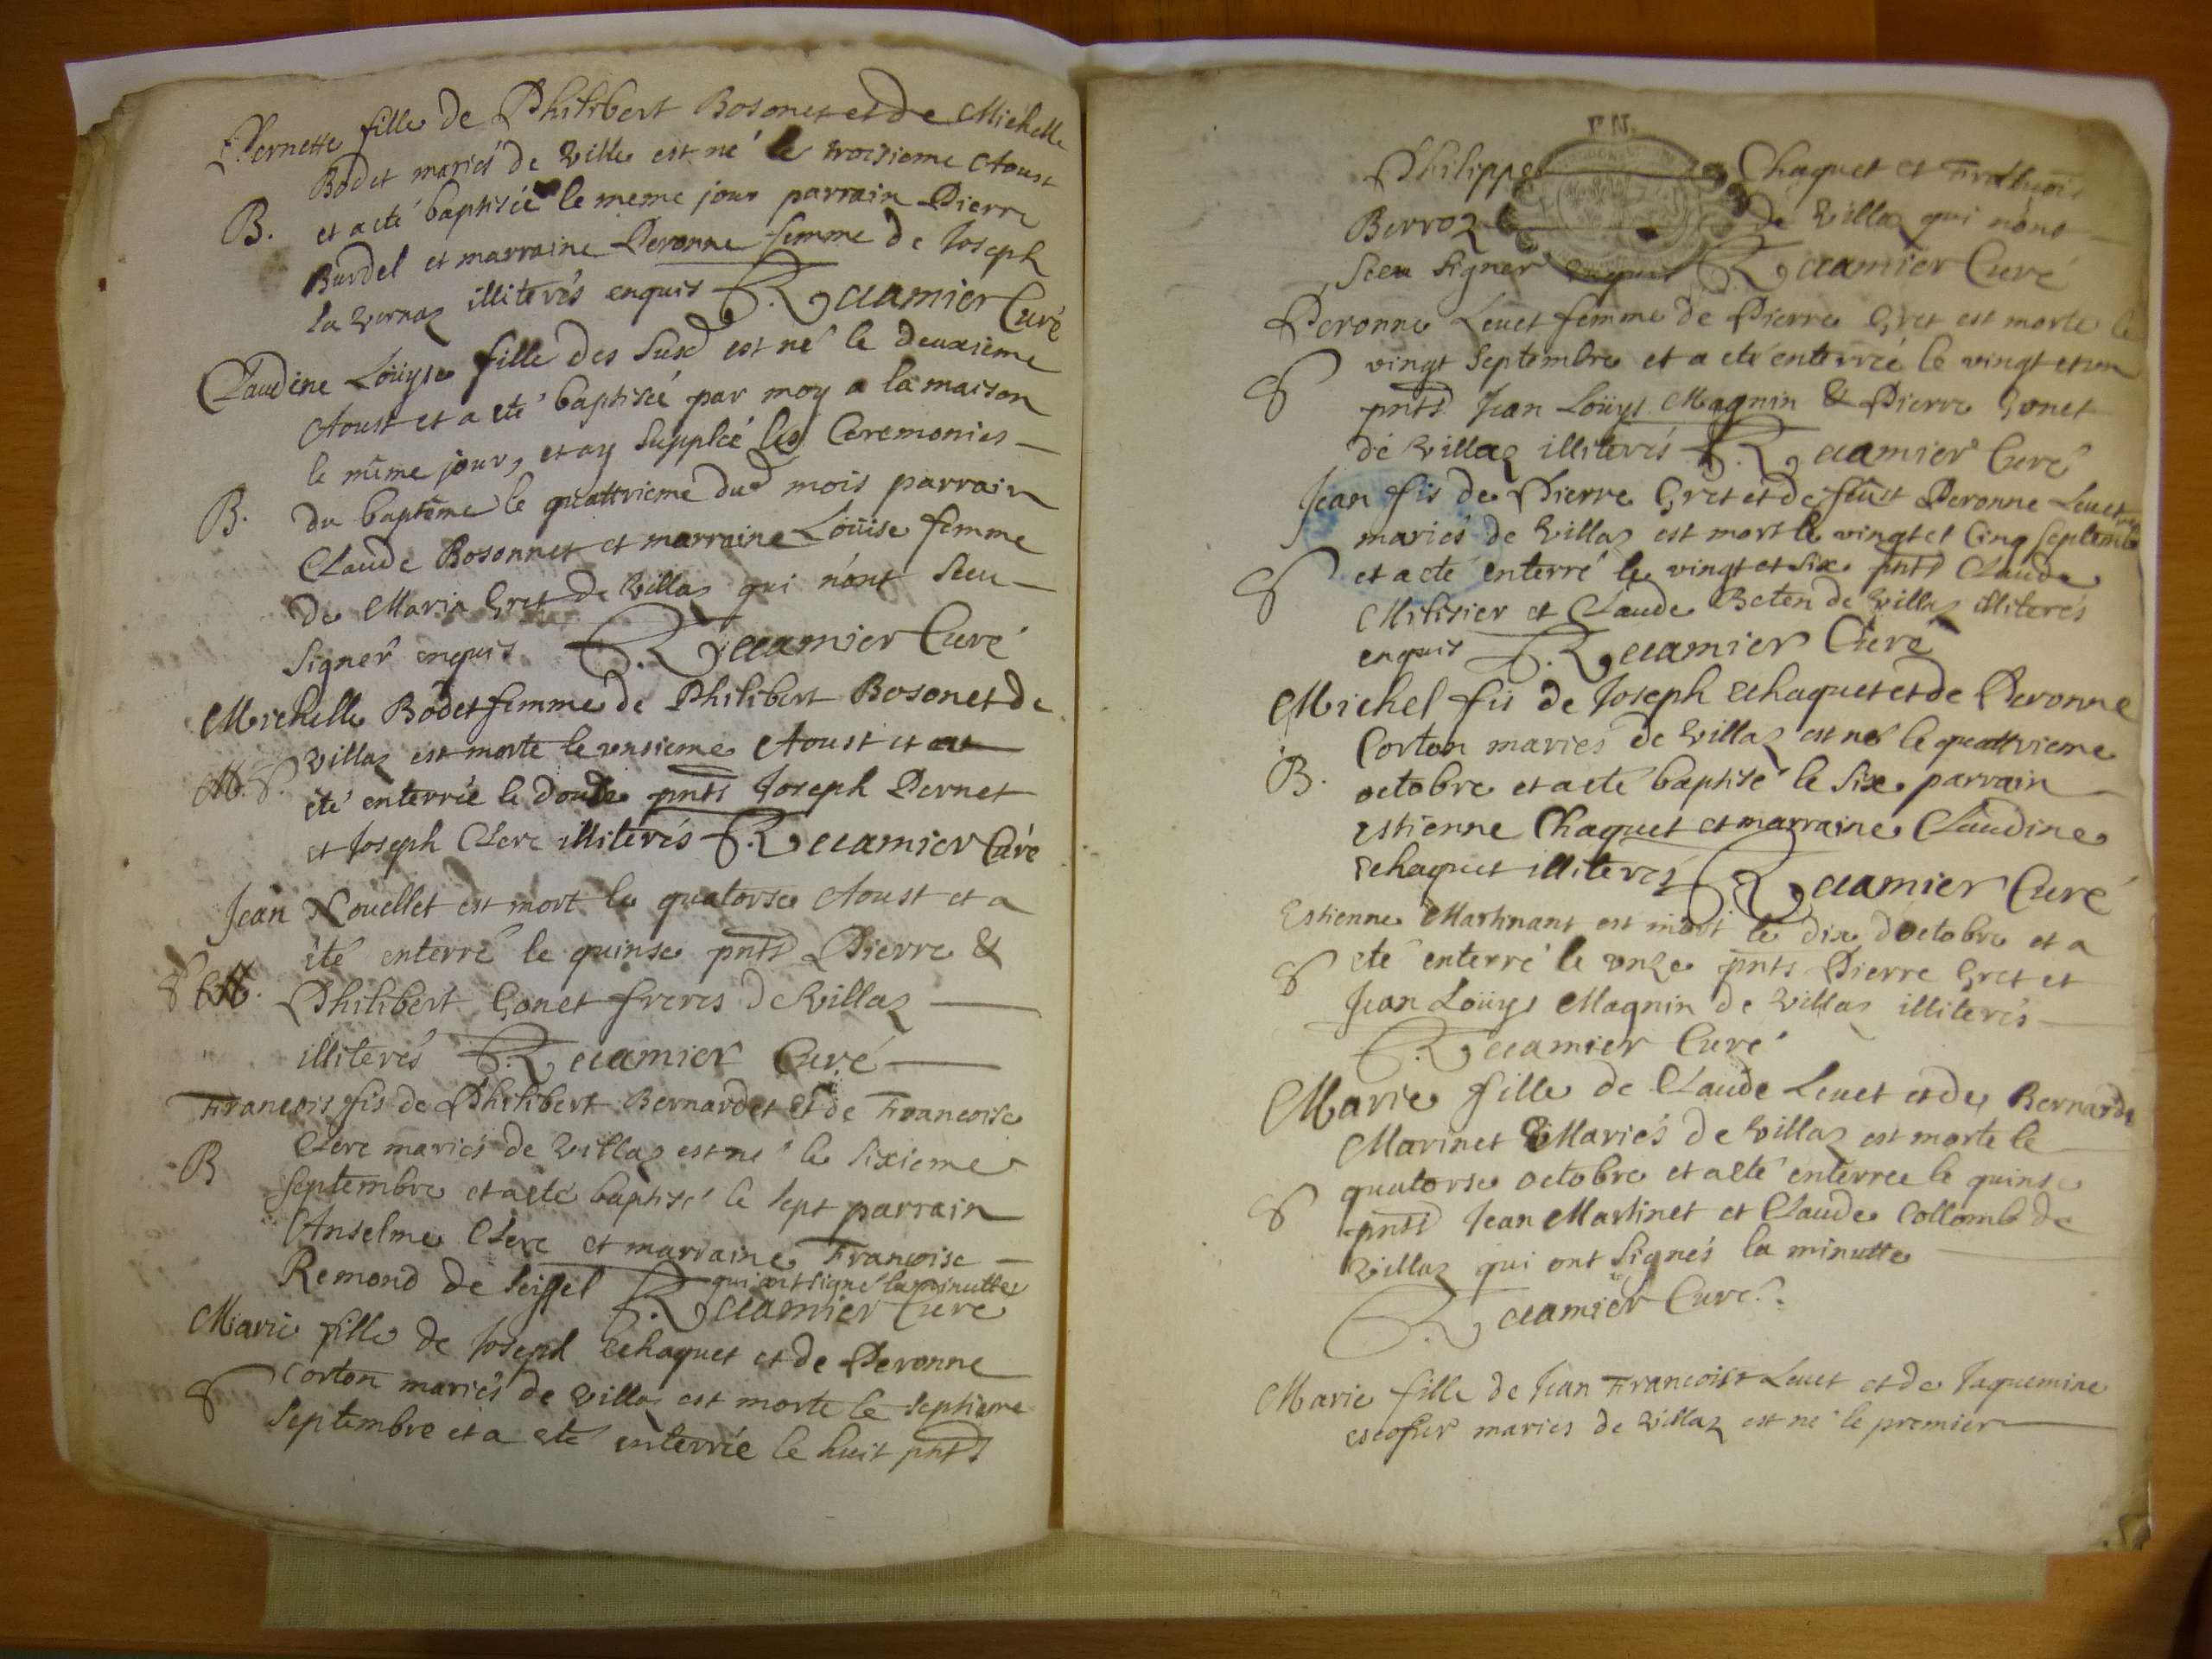 Pernette fille de Philibert Bosonet et de Michelle
Bodet mariés de Ville est né le troisieme Aoust
B. et a eté baptisée le meme jour parrain Pierre
Burdel et marraine Peronne femme de Joseph
la Vernaz illiterés enquis R. Recamier Curé
Claudine Loüyse fille des susd est né le deuxieme
Aoust et a eté baptisée par moy a la maison
le même jour, et ay supplée les Ceremonies
B. du baptême le quattrieme dud mois parrain
Claude Bosonnet et marraine Loüise femme
de Maria Gret de Villaz qui n'ont sceu
signer enquis Recamier Curé
Michelle Bodet femme de Philibert Bosonet de
Villaz est morte le onsieme Aoust et a
M. S. été enterrée le douse pnts Joseph Pernet
et Joseph Clerc illiterés Recamier Curé
Jean Nouellet est mort le quatorse Aoust et a
été enterré le quinse pnts Pierre &
S Philibert Gonet freres de Villaz
illiterés Recamier Curé
Francois fis de Philibert Bernardet et de Francoise
Clerc mariés de Villaz est né le sixieme
B septembre et a eté baptisé le sept parrain
Anselme Clerc et marraine Françoise
Remond de seissel qui ont signé la minutte
Recamier Curé
Marie fille de Joseph Echaquet et de Peronne
Corton mariés de Villaz est morte le septieme
S septembre et a eté enterrée le huit pnts
Philippe Chaquet et Francois
Berroz de Villaz qui n'ont
sceu signer enquis Recamier Curé
Peronne Leuet femme de Pierre Gret est morte le
vingt septembre et a eté enterrée le vingt et un
S pnts Jean Loüys Magnin & Pierre Gonet
de Villaz illiterés Recamier Curé
Jean fis de Pierre Gret et de fûst Peronne Leuet
mariés de Villaz est mort le vingt et cinq septembre
et a eté enterré le vingt et six pnts Claude
S Milisier et Claude Beten de Villaz illiterés
enquis Recamier Curé
Michel fis de Joseph Echaquet et de Peronne
Corton mariés de Villaz est né le quattrieme
B. octobre et a eté baptisé le six parrain
Estienne Chaquet et marraine Claudine
Echaquet illiterés Recamier Curé
Estienne Martinant est mort le dix d'octobre et a
S eté enterré le onze pnts Pierre Gret et
Jean Loüys Magnin de Villaz illiterés
Recamier Curé
Marie fille de Claude Leuet et de Bernarde
Marinet Mariés de Villaz est morte le
quatorse octobre et a eté enterree le quinse
S pnts Jean Martinet et Claude Collomb de
Villaz qui ont signés la minutte
Recamier Curé
Marie fille de Jean Francois Leuet et de Jaquemine
escofier mariés de Villaz est né le premier